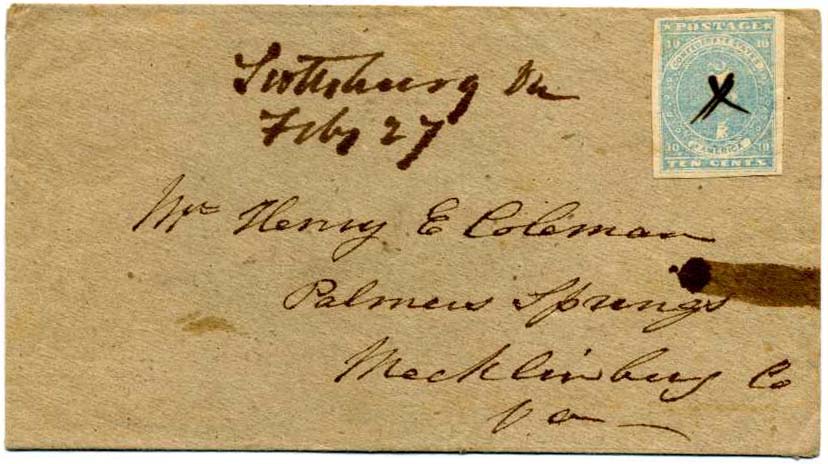 Scottsburg Va
Feby 27
POSTAGE
CONFEDERATE STATES
10 10
10 10
OF AMERICA
TEN CENTS.
X
Mr Henry E Coleman
Palmers Springs
Mecklinburg Co
Va